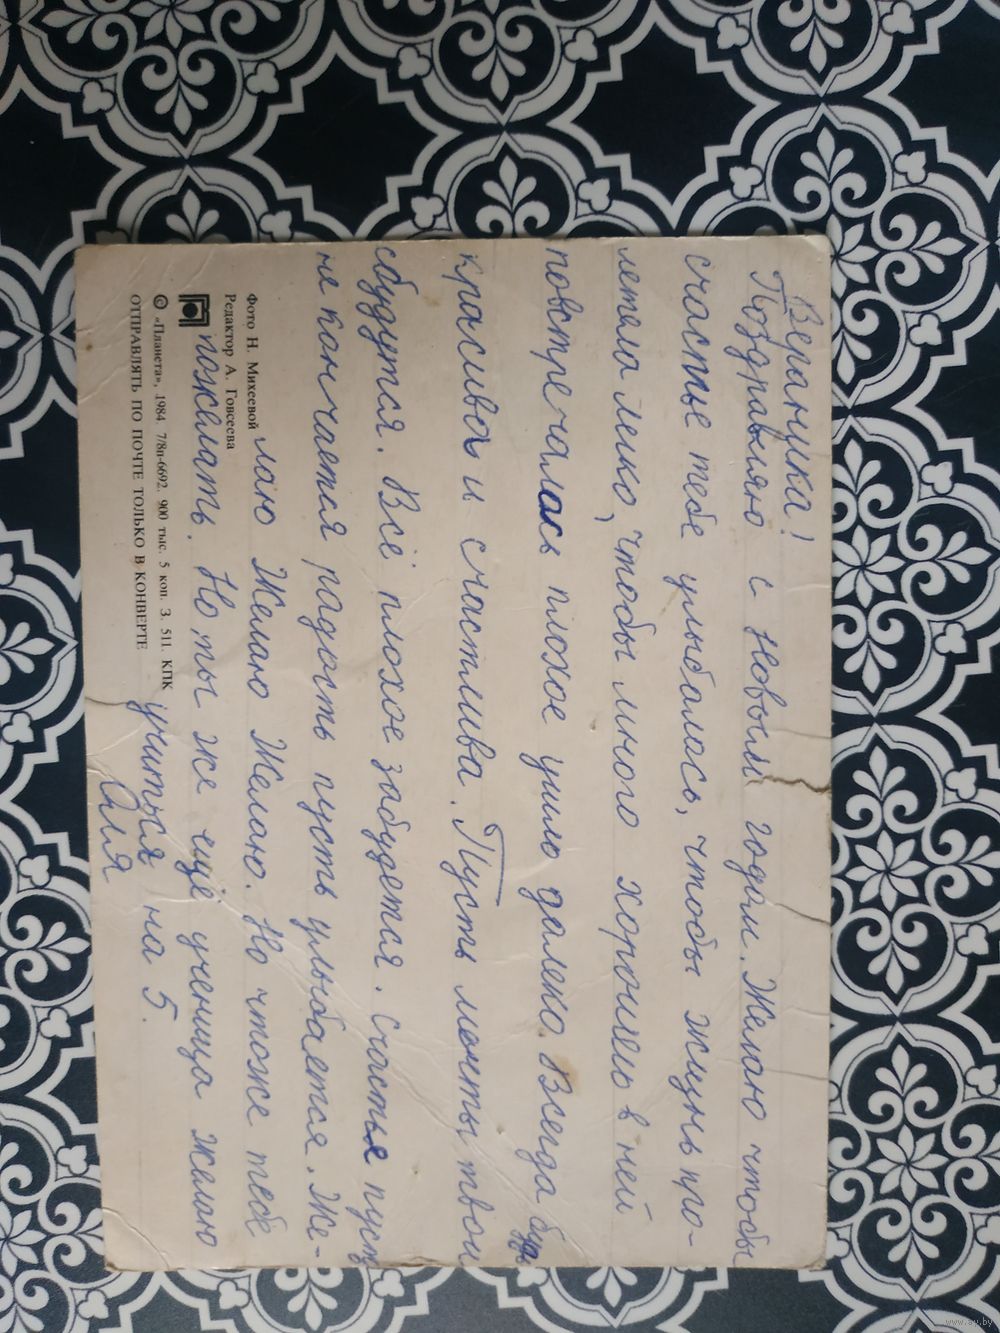 Вераничка!
Поздравляю с Новым годом. Желаю чтобы
счастье тебе улыбалась, чтобы жизнь про-
летела легко, чтобы много хорошего в ней
повстречалось плохое ушло далеко. Всегда будь
красива и счастлива. Пусть мечты твои
сбудутся. Всё плохое забудется. счастье пусть
не кончается радость пусть улыбается. Же-
лаю Желаю Желаю. Но чтоже тебе
пожелать. Но ты же ещё ученица желаю
учиться на 5.
Оля
Фото Н. Михеевой
Редактор А. Говсеева
© «Планета», 1984. 7/8п-6692. 900 тыс. 5 коп. З. 511. КПК
ОТПРАВЛЯТЬ ПО ПОЧТЕ ТОЛЬКО В КОНВЕРТЕ
www.ay.by